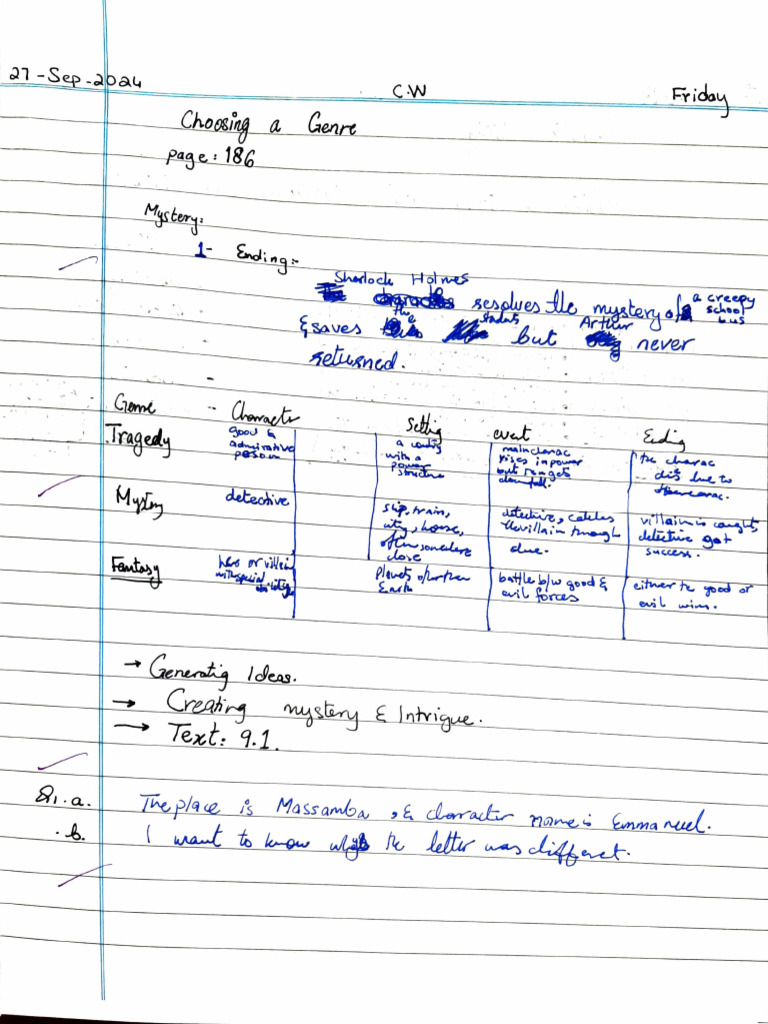 27-Sep-2024
C.W
Friday
Choosing a Genre
page: 186
Mystery:
1- Ending:-
Sherlock Holmes resolves the mystery of a creepy school bus
& saves the students but Arthur never
returned.
Genre Character Setting event Ending
Tragedy good & admirative person a country with a power structure main charac rises in power but gets downfall. the charac dies due to
Mystery detective ship, train, city, house, often somewhere close detective, catches the villain through clue. villain is caught, detective got success.
Fantasy hero or villain with special abilities Planets other than Earth battle b/w good & evil forces either the good or evil wins.
→ Generatig Ideas.
→ Creating mystery & Intrigue.
→ Text: 9.1.
Q1. a. The place is Massamba, & character name is Emmanuel.
.b. I want to know why the letter was different.